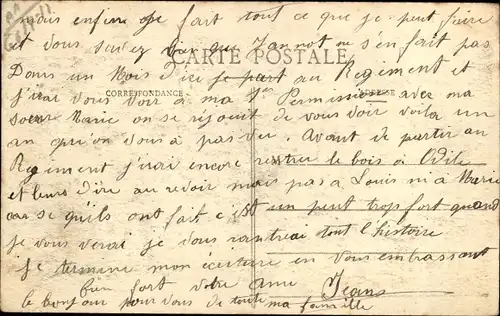 mais enfin on fait tout ce que je peut faire
et vous savez bien que Jannot ne s'en fait pas
CARTE POSTALE
Dans un Mois d'ici je part au Regiment et
CORRESPONDANCE
j'irai vous voir à ma 1re Permission avec ma
soeur Marie on se rejouit de vous voir voila un
an qu'on vous a pas vu. Avant de partir au
Regiment j'irai encore rentrer le bois a Odile
et leurs dire au revoir mais pas a Louis ni a Marie
car se qu'ils ont fait c'est un peut trop fort quand
je vous verai je vous rantrerai tout l'histoire
Je termine mon écriture en vous embrassant
bien fort votre ami Jean
le bonjour pour vous de toute ma famille